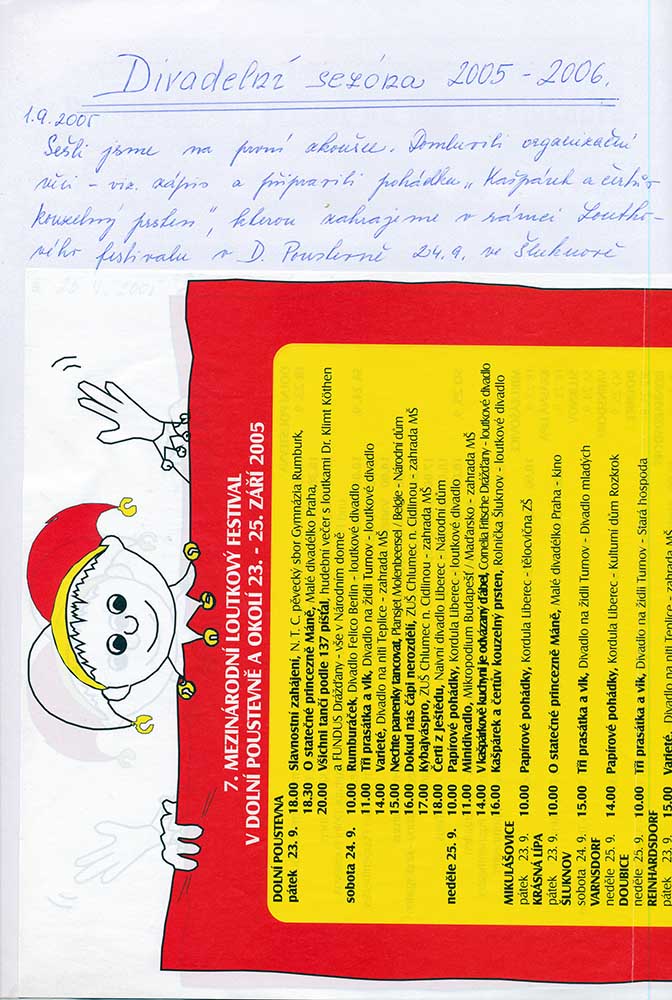 Divadelní sezóna 2005-2006.
1.9.2005
Sešli jsme na první zkoušce. Domluvili organizační
věci - viz. zápis a připravili pohádku „Kašpárek a čertův
kouzelný prsten", kterou zahrajeme v rámci Loutko-
vého festivalu v D. Poustevně 24.9. ve Šluknově
7. MEZINÁRODNÍ LOUTKOVÝ FESTIVAL
V DOLNÍ POUSTEVNĚ A OKOLÍ 23. - 25. ZÁŘÍ 2005
DOLNÍ POUSTEVNA
pátek 23. 9. 18.00 Slavnostní zahájení, N. T. C. pěvecký sbor Gymnázia Rumburk,
18.30 O statečné princezně Máně, Malé divadélko Praha,
20.00 Všichni tančí podle 137 píšťal, hudební večer s loutkami Dr. Klimt Köthen
a FUNDUS Drážďany - vše v Národním domě
sobota 24. 9. 10.00 Rumburáček, Divadlo Felico Berlin - loutkové divadlo
11.00 Tři prasátka a vlk, Divadlo na židli Turnov - loutkové divadlo
14.00 Varieté, Divadlo na niti Teplice - zahrada MŠ
15.00 Nechte panenky tancovat, Plansjet Molenbeersel / Belgie - Národní dům
16.00 Dokud nás čápi nerozdělí, ZUŠ Chlumec n. Cidlinou - zahrada MŠ
17.00 Kyhajváspro, ZUŠ Chlumec n. Cidlinou - zahrada MŠ
18.00 Čerti z Ještědu, Naivní divadlo Liberec - Národní dům
neděle 25. 9. 10.00 Papírové pohádky, Kordula Liberec - loutkové divadlo
11.00 Minidivadlo, Mikropodium Budapešť / Maďarsko - zahrada MŠ
14.00 V kašpárkově kuchyni je odkázaný ďábel, Cornelia Fritzsche Drážďany - loutkové divadlo
16.00 Kašpárek a čertův kouzelný prsten, Rolnička Šluknov - loutkové divadlo
MIKULÁŠOVICE
pátek 23. 9. 10.00 Papírové pohádky, Kordula Liberec - tělocvična ZŠ
KRÁSNÁ LÍPA
pátek 23. 9. 10.00 O statečné princezně Máně, Malé divadélko Praha - kino
ŠLUKNOV
sobota 24. 9. 15.00 Tři prasátka a vlk, Divadlo na židli Turnov - Divadlo mladých
VARNSDORF
neděle 25. 9. 14.00 Papírové pohádky, Kordula Liberec - Kulturní dům Rozkrok
DOUBICE
neděle 25. 9. 10.00 Tři prasátka a vlk, Divadlo na židli Turnov - Stará hospoda
REINHARDSDORF
pátek 23. 9. 15.00 Varieté, Divadlo na niti Teplice - zahrada MŠ